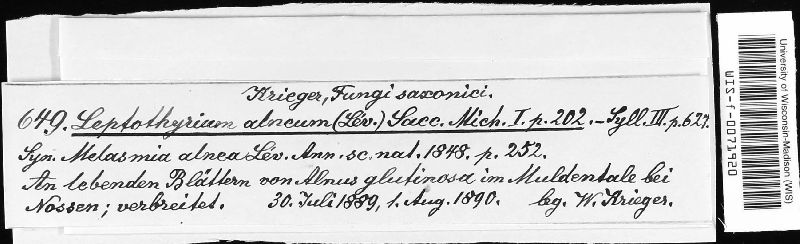 Krieger, Fungi saxonici.
649. Leptothyrium alneum (Lév.) Sacc. Mich. I. p. 202. – Syll. III. p. 627.
Syn. Melasmia alnea Lév. Ann. sc. nat. 1848. p. 252.
An lebenden Blättern von Alnus glutinosa im Muldentale bei
Nossen; verbreitet. 30. Juli 1889, 1. Aug. 1890. leg. W. Krieger.
University of Wisconsin-Madison (WIS)
WIS-f-0071920